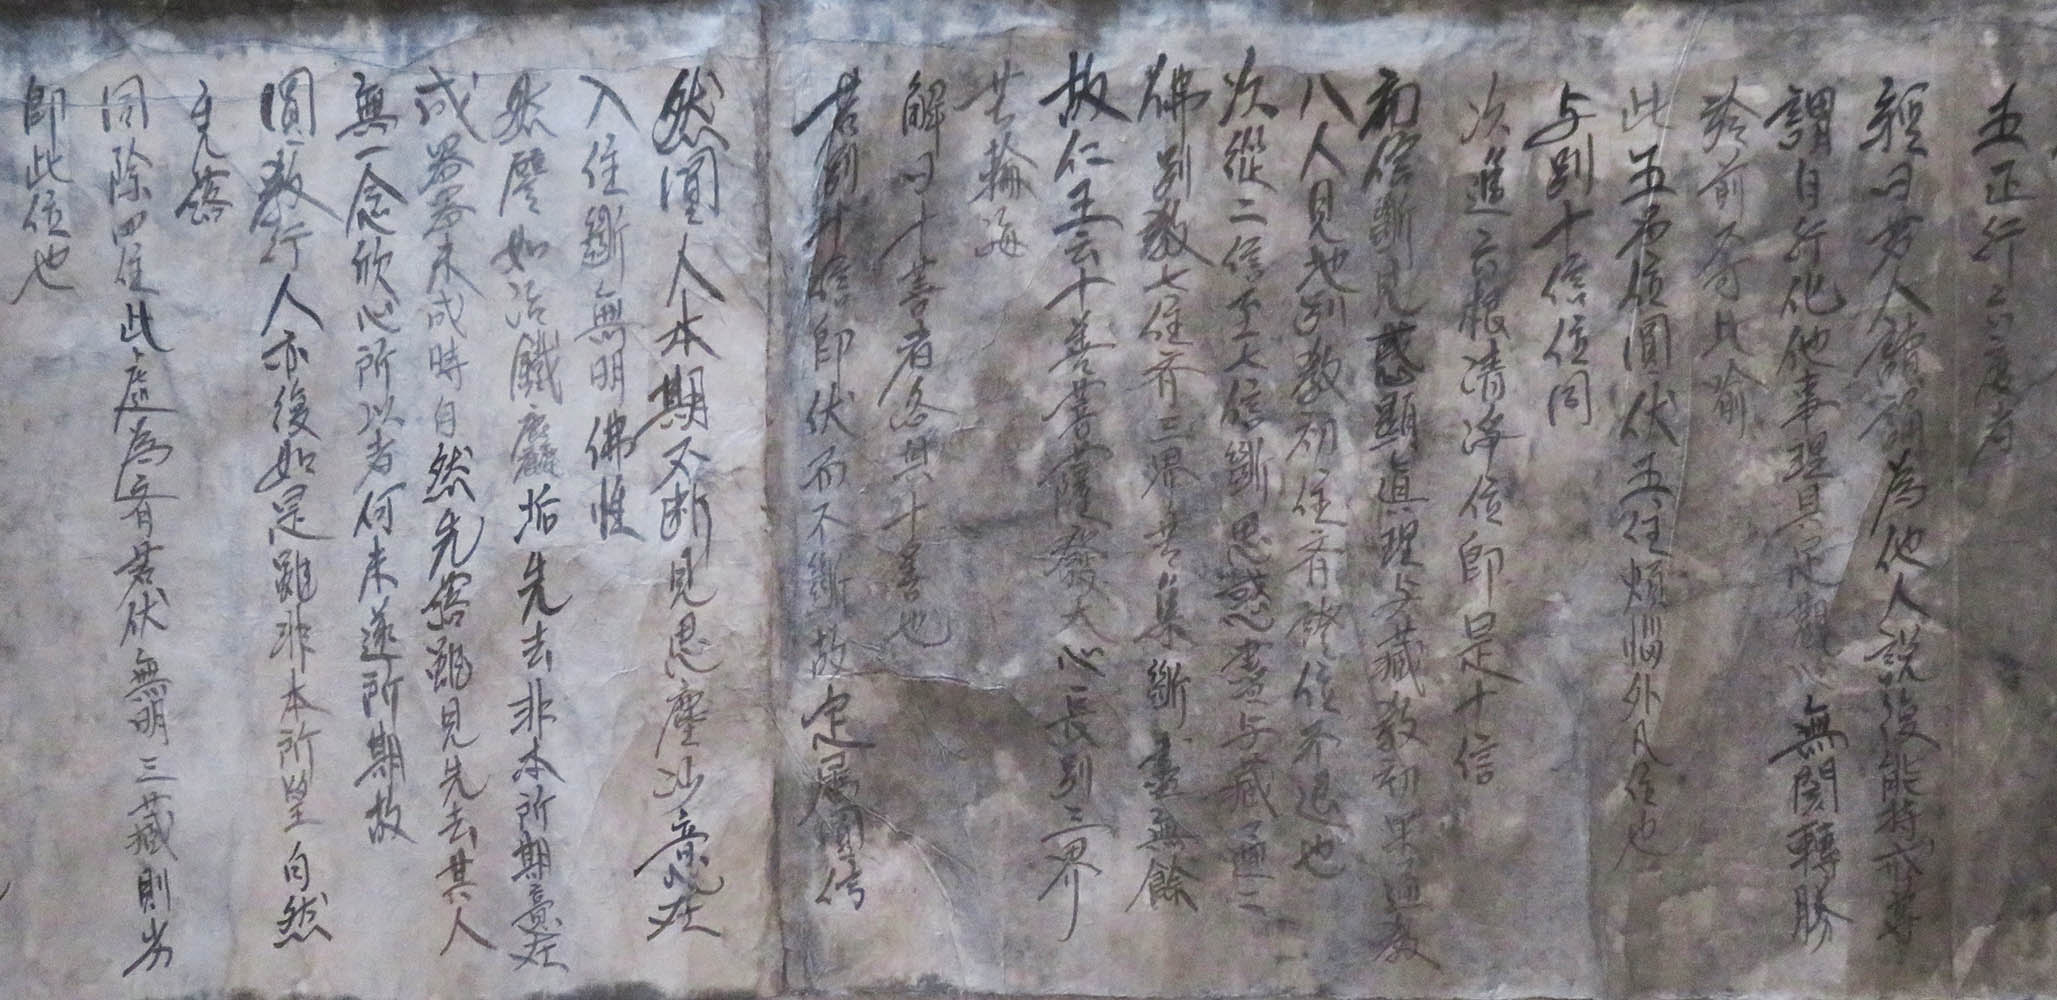 五正行六度者
經曰若人讀誦為他人說復能持戒等
謂自行化他事理具足觀心無閡轉勝
於前不可比喻
此五品位圓伏五住煩惱外凡位也
与別十信位同
次進六根清淨位即是十信
初信斷見惑顯真理与藏教初果通教
八人見地別教初住齊證位不退也
次從二信至七信斷思惑盡与藏通二
佛別教七住齊三界苦集斷盡無餘
故仁王云十善菩薩發大心長別三界
苦輪海
解曰十善者各具十善也
若別十信即伏而不斷故定屬圓信
然圓人本期不断見思塵沙意在
入住斷無明佛性
然譬如冶鐵麤垢先去非本所期意在
成器器未成時自然先落雖見先去其人
無一念欣心所以者何未遂所期故
圓教行人亦復如是雖非本所望自然
先落
同除四住此處為齊若伏無明三藏則劣
即此位也